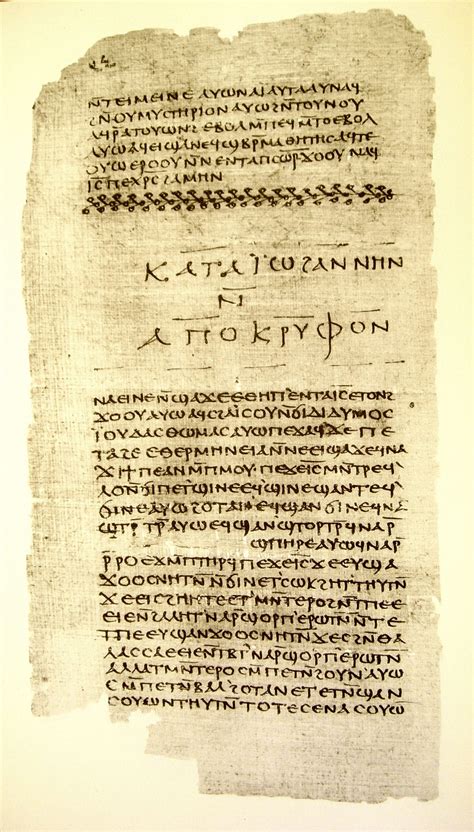 ⲛⲧⲉⲓⲙⲉⲓⲛⲉ ⲁⲩⲱ ⲛⲁⲓ ⲁⲩⲧⲁⲁⲩ ⲛⲁϥ
ϩⲛ ⲟⲩⲙⲩⲥⲧⲏⲣⲓⲟⲛ ⲁⲩⲱ ϩⲛ ⲧⲟⲩⲛⲟⲩ
ⲁϥⲣⲁⲧⲟⲩⲱⲛϩ ⲉⲃⲟⲗ ⲙⲡⲉϥⲙⲧⲟ ⲉⲃⲟⲗ
ⲁⲩⲱ ⲁϥⲉⲓ ϣⲁ ⲛⲉϥϣⲃⲣⲙⲁⲑⲏⲧⲏⲥ ⲁϥⲧⲉ
ⲟⲩⲱ ⲉⲣⲟⲟⲩ ⲛⲛⲉⲛⲧⲁⲡⲥⲱⲣ ϫⲟⲟⲩ ⲛⲁϥ
ⲓⲥ ⲡⲉⲭⲣⲥ ϩⲁⲙⲏⲛ
ⲕⲁⲧⲁ ⲓⲱϩⲁⲛⲛⲏⲛ
ⲛ̄
ⲁⲡⲟⲕⲣⲩⲫⲟⲛ
ⲛⲁⲉⲓ ⲛⲉ ⲛϣⲁϫⲉ ⲉⲑⲏⲡ ⲉⲛⲧⲁⲓⲥ ⲉⲧⲟⲛϩ
ϫⲟⲟⲩ ⲁⲩⲱ ⲁϥⲥϩⲁⲓⲥⲟⲩ ⲛϭⲓ ⲇⲓⲇⲩⲙⲟⲥ
ⲓⲟⲩⲇⲁⲥ ⲑⲱⲙⲁⲥ ⲁⲩⲱ ⲡⲉϫⲁϥ ϫⲉ ⲡⲉ
ⲧⲁϩⲉ ⲉⲑⲉⲣⲙⲏⲛⲉⲓⲁ ⲛⲛⲉⲉⲓϣⲁϫⲉ ϥⲛⲁ
ϫⲓ ϯⲡⲉ ⲁⲛ ⲙⲡⲙⲟⲩ ⲡⲉϫⲉ ⲓⲥ ⲙⲛⲧⲣⲉϥ
ⲗⲟ ⲛϭⲓ ⲡⲉⲧϣⲓⲛⲉ ⲉϥϣⲓⲛⲉ ϣⲁⲛⲧⲉϥ
ϭⲓⲛⲉ ⲁⲩⲱ ϩⲟⲧⲁⲛ ⲉϥϣⲁⲛϭⲓⲛⲉ ϥⲛⲁ
ϣⲧⲣⲧⲣ ⲁⲩⲱ ⲉϥϣⲁⲛϣⲧⲟⲣⲧⲣ ϥⲛⲁⲣ
ϣⲡⲏⲣⲉ ⲁⲩⲱ ϥⲛⲁⲣ
ⲣⲣⲟ ⲉϫⲙ ⲡⲧⲏⲣϥ ⲡⲉϫⲉ ⲓⲥ ϫⲉ ⲉⲩϣⲁ
ϫⲟⲟⲥ ⲛⲏⲧⲛ ⲛϭⲓ ⲛⲉⲧⲥⲱⲕ ϩⲏⲧ ⲑⲩⲧⲛ
ϫⲉ ⲉⲓⲥϩⲏⲏⲧⲉ ⲉⲧⲙⲛⲧⲉⲣⲟ ϩⲛ ⲧⲡⲉ
ⲉⲉⲓⲉ ⲛϩⲁⲗⲏⲧ ⲛⲁⲣ ϣⲟⲣⲡ ⲉⲣⲱⲧⲛ ⲛⲧⲉ
ⲧⲡⲉ ⲉⲩϣⲁⲛϫⲟⲟⲥ ⲛⲏⲧⲛ ϫⲉ ⲥϩⲛ ⲑⲁ
ⲗⲁⲥⲥⲁ ⲉⲉⲓⲉ ⲛⲧⲃⲧ ⲛⲁⲣ ϣⲟⲣⲡ ⲉⲣⲱⲧⲛ
ⲁⲗⲗⲁ ⲧⲙⲛⲧⲉⲣⲟ ⲥⲙⲡⲉⲧⲛϩⲟⲩⲛ ⲁⲩⲱ
ⲥⲙⲡⲉⲧⲛⲃⲁⲗ ϩⲟⲧⲁⲛ ⲉⲧⲉⲧⲛϣⲁⲛ
ⲥⲟⲩⲱⲛ ⲑⲩⲧⲛ ⲧⲟⲧⲉ ⲥⲉⲛⲁⲥⲟⲩⲱ